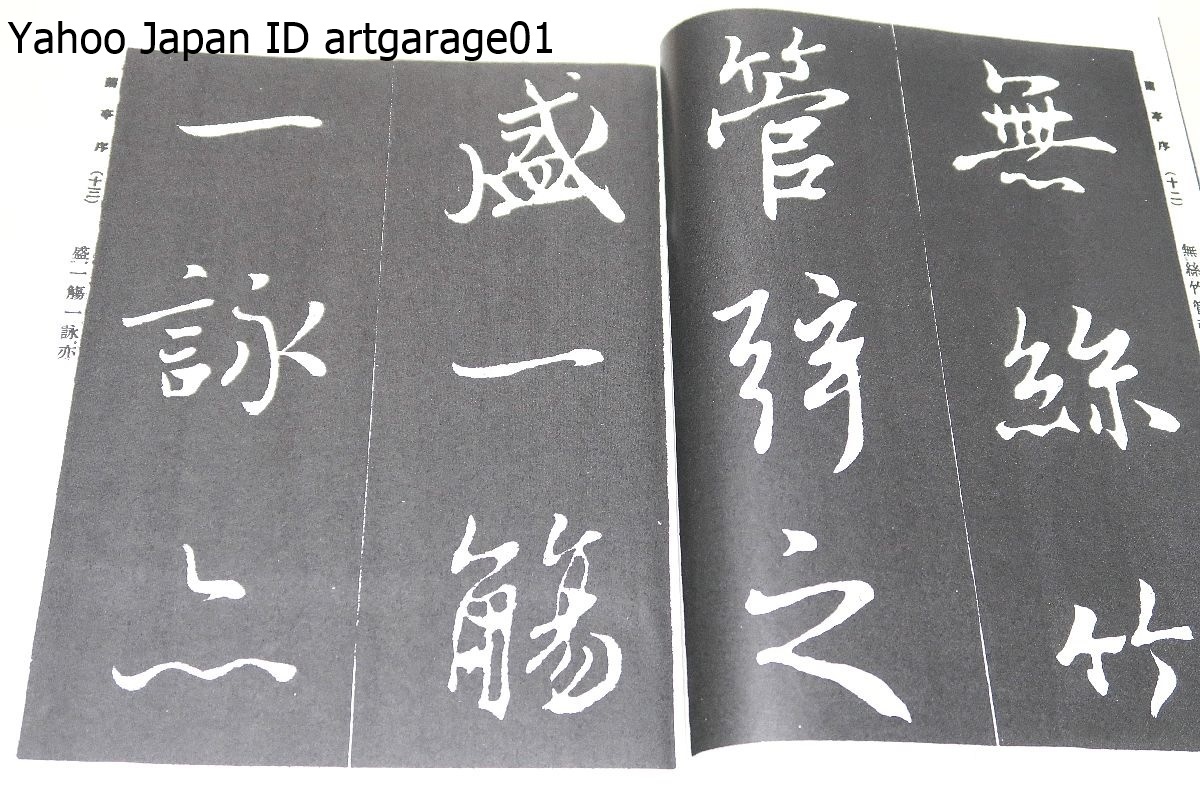 Yahoo Japan ID artgarage01
蘭亭序(十二)
無絲竹管
無絲竹
管弦之
盛一觴
一詠亦
蘭亭序(十三)
盛一觴一詠亦